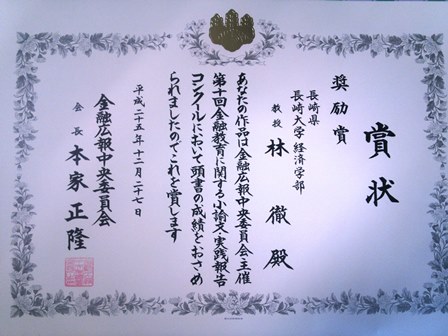 賞状
奨励賞
長崎県
長崎大学 経済学部
教授 林 徹 殿
あなたの作品は金融広報中央委員会主催
第十回金融教育に関する小論文・実践報告
コンクールにおいて頭書の成績をおさめ
られましたのでこれを賞します
平成二十五年十二月二十七日
金融広報中央委員会
会長 本家正隆